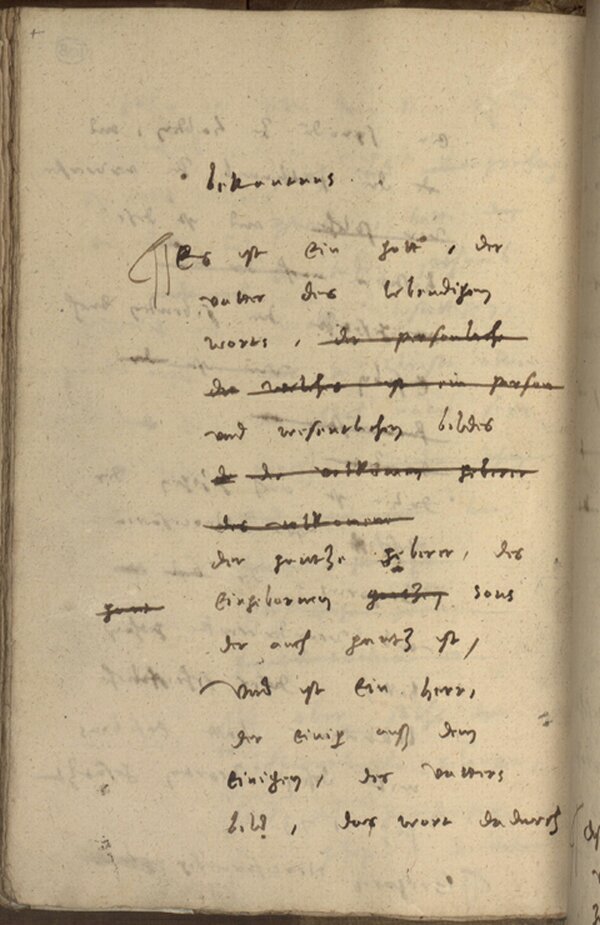 bekantnus
Es ist ein gott, der
vatter des lebendigen
worts, der persenliche
die welches ist ein person
vnd wesentlichen bildes
der volkomen geberer
des volkomene
der gantze geberer, des
eingebornen gantzen sons
gant
der auch gantz ist,
Vnd ist ein herr,
der einig auß dem
einichen, des vatters
bild, das wort dadurch